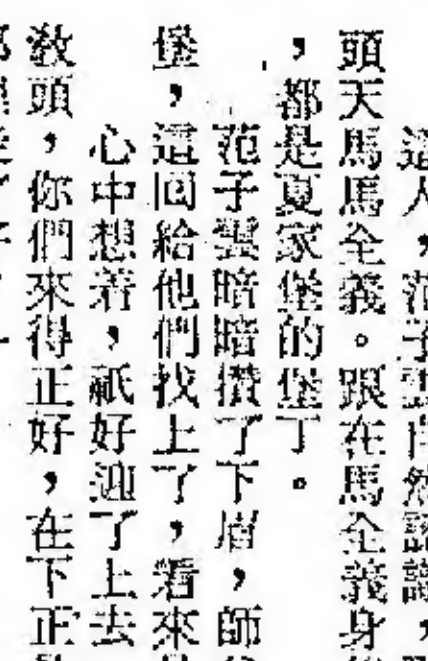 這人，范子雲自然認識，
頭天馬馬全義。跟在馬全義身
，都是夏家堡的堡丁。
范子雲暗暗攢了下眉，師
堡，這回給他們找上了，看來
心中想着，祇好迎了上去
教頭，你們來得正好，在下正